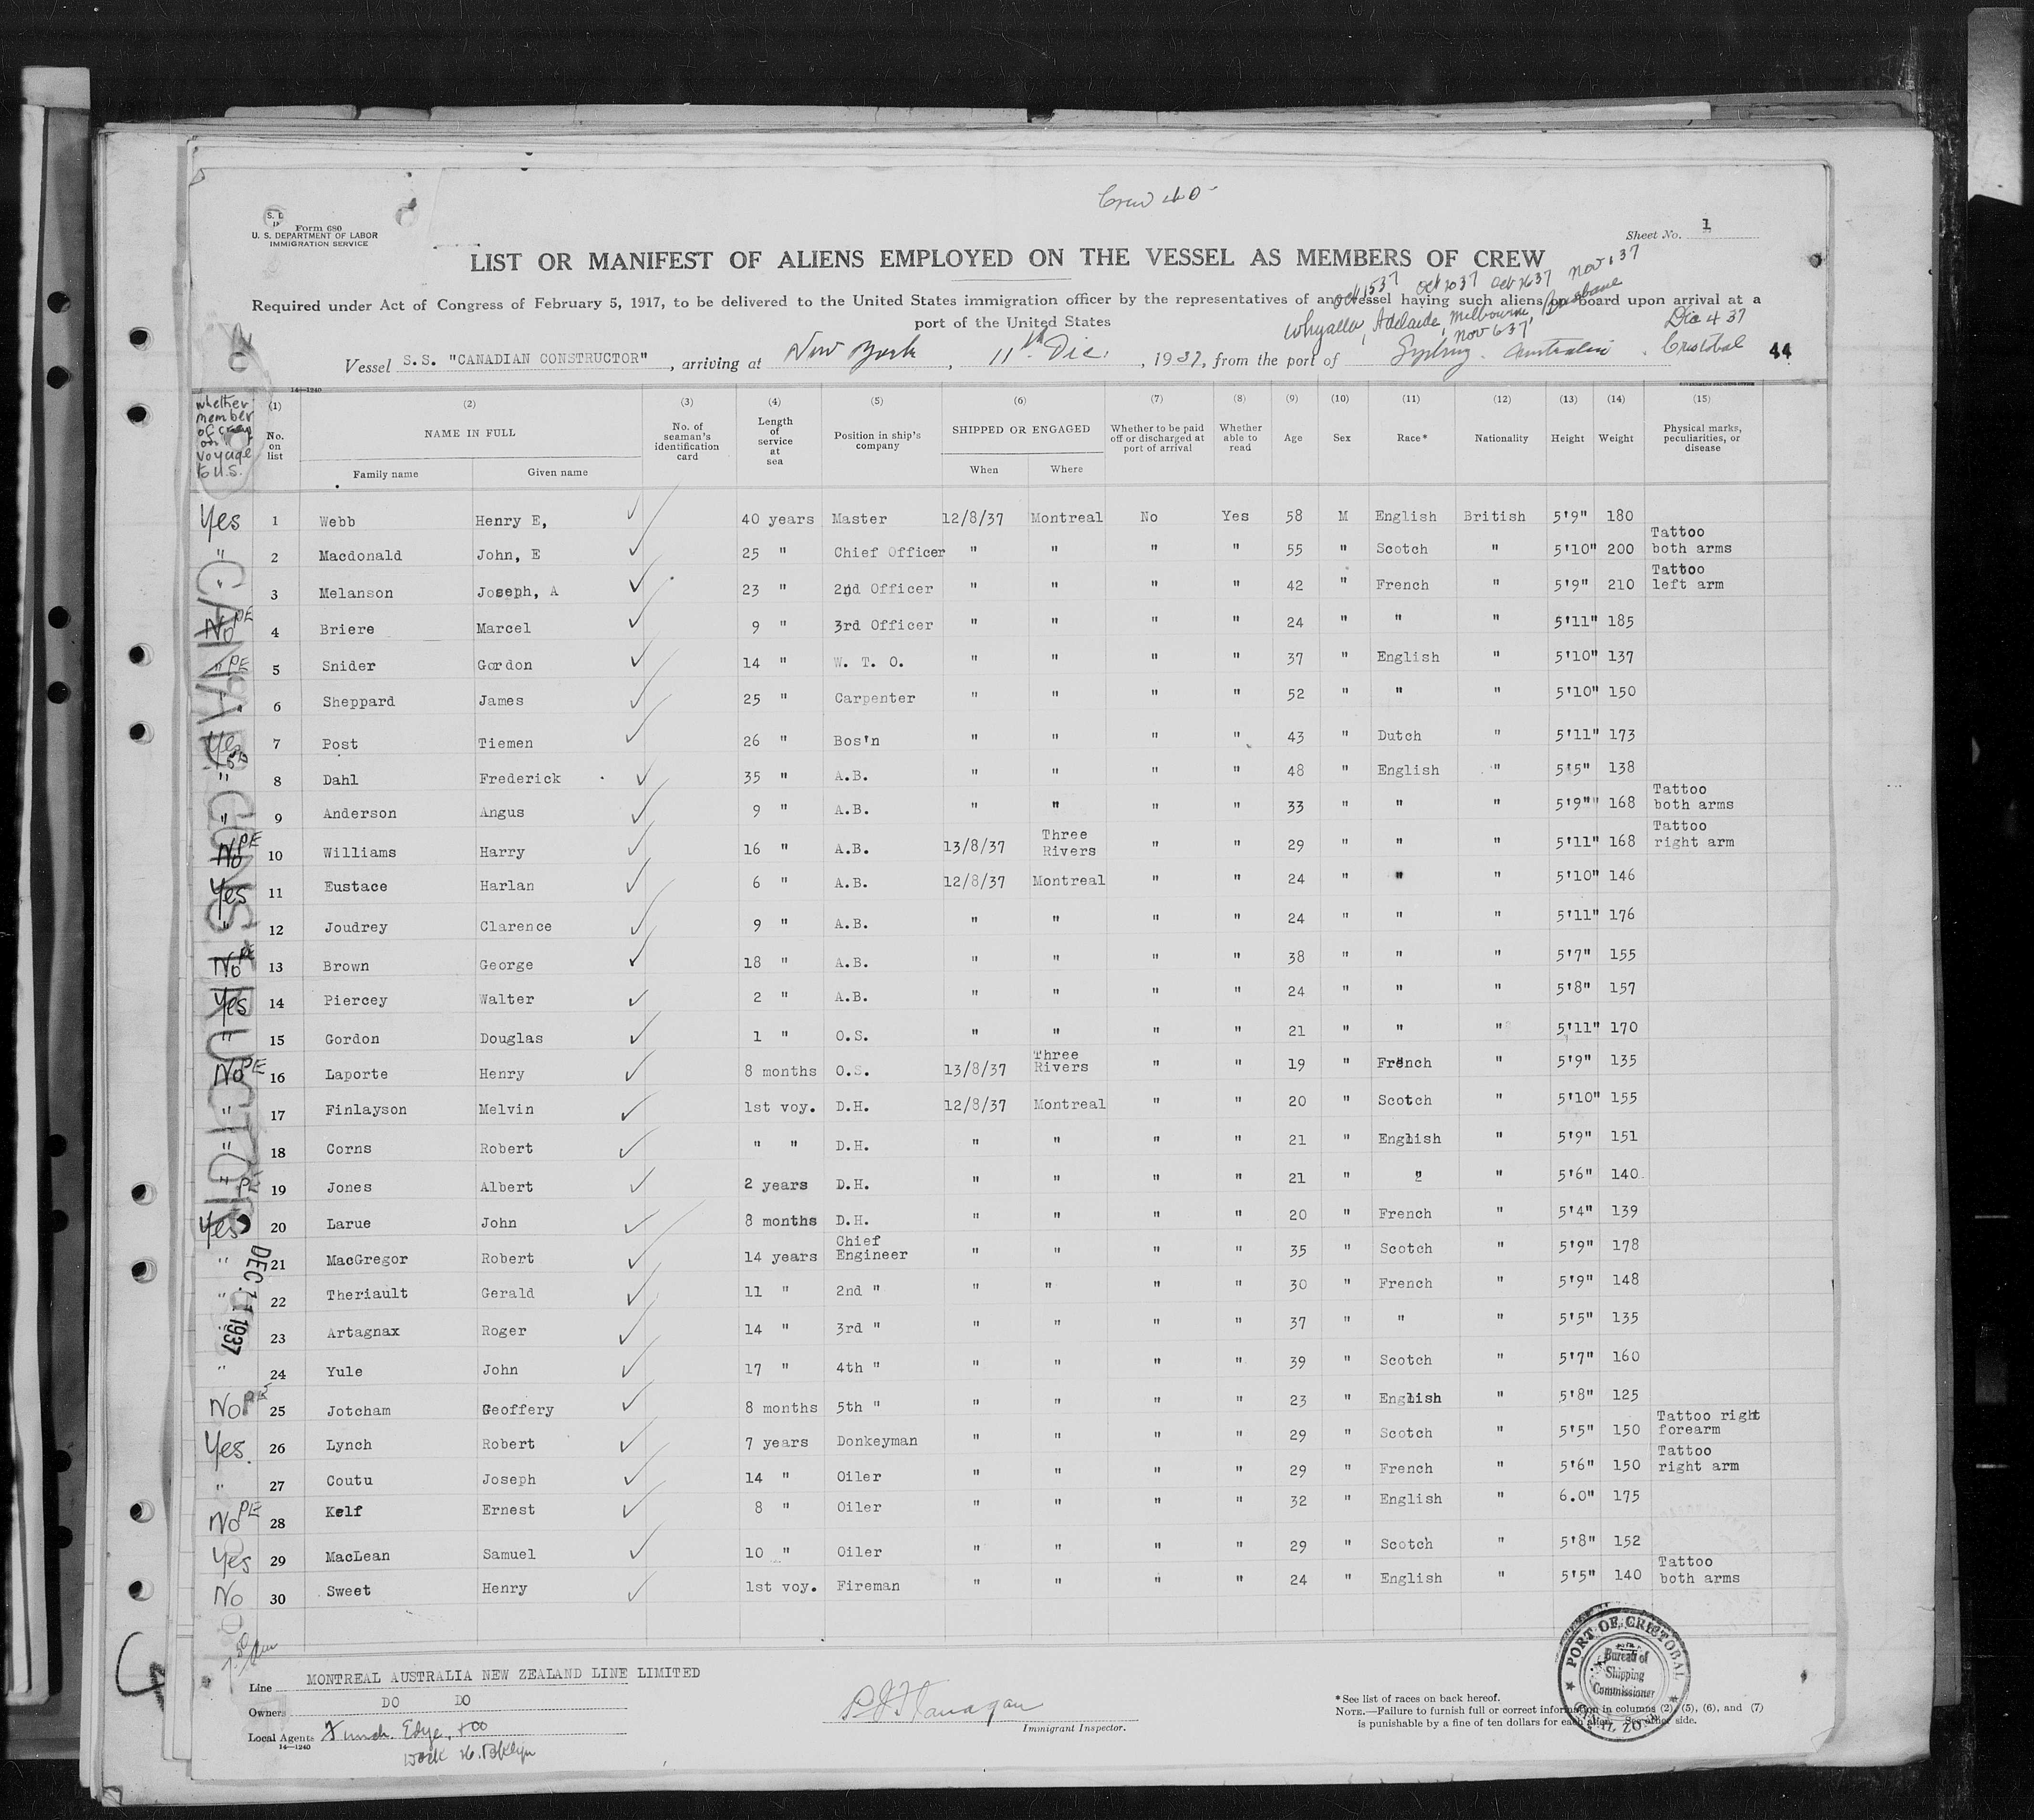 Crew 40
S. L.
Form 680
U. S. DEPARTMENT OF LABOR
IMMIGRATION SERVICE
Sheet No. 1
LIST OR MANIFEST OF ALIENS EMPLOYED ON THE VESSEL AS MEMBERS OF CREW
Oct 15 37 Oct 20 37 Oct 26 37 Nov 1 37
Required under Act of Congress of February 5, 1917, to be delivered to the United States immigration officer by the representatives of any vessel having such aliens on board upon arrival at a
port of the United States
Whyalla, Adelaide, Melbourne, Brisbane
Nov 6 37 Dec 4 37
Vessel S.S. "CANADIAN CONSTRUCTOR", arriving at New York, 11th Dec., 1937, from the port of Sydney. Australia. Cristobal 44
14—1240
whether member of crew on voyage to U.S. (1) No. on list (2) NAME IN FULL Family name Given name (3) No. of seaman's identification card (4) Length of service at sea (5) Position in ship's company (6) SHIPPED OR ENGAGED When Where (7) Whether to be paid off or discharged at port of arrival (8) Whether able to read (9) Age (10) Sex (11) Race* (12) Nationality (13) Height (14) Weight (15) Physical marks, peculiarities, or disease
Yes 1 Webb Henry E, 40 years Master 12/8/37 Montreal No Yes 58 M English British 5'9" 180
" 2 Macdonald John, E 25 " Chief Officer " " " " 55 " Scotch " 5'10" 200 Tattoo both arms
" 3 Melanson Joseph, A 23 " 2nd Officer " " " " 42 " French " 5'9" 210 Tattoo left arm
No PE 4 Briere Marcel 9 " 3rd Officer " " " " 24 " " " 5'11" 185
" PE 5 Snider Gordon 14 " W. T. O. " " " " 37 " English " 5'10" 137
" 6 Sheppard James 25 " Carpenter " " " " 52 " " " 5'10" 150
Yes 7 Post Tiemen 26 " Bos'n " " " " 43 " Dutch " 5'11" 173
" 8 Dahl Frederick 35 " A.B. " " " " 48 " English " 5'5" 138
" 9 Anderson Angus 9 " A.B. " " " " 33 " " " 5'9" 168 Tattoo both arms
No PE 10 Williams Harry 16 " A.B. 13/8/37 Three Rivers " " 29 " " " 5'11" 168 Tattoo right arm
Yes 11 Eustace Harlan 6 " A.B. 12/8/37 Montreal " " 24 " " " 5'10" 146
" 12 Joudrey Clarence 9 " A.B. " " " " 24 " " " 5'11" 176
No PE 13 Brown George 18 " A.B. " " " " 38 " " " 5'7" 155
Yes 14 Piercey Walter 2 " A.B. " " " " 24 " " " 5'8" 157
" 15 Gordon Douglas 1 " O.S. " " " " 21 " " " 5'11" 170
No PE 16 Laporte Henry 8 months O.S. 13/8/37 Three Rivers " " 19 " French " 5'9" 135
" 17 Finlayson Melvin 1st voy. D.H. 12/8/37 Montreal " " 20 " Scotch " 5'10" 155
" 18 Corns Robert " " D.H. " " " " 21 " English " 5'9" 151
" PE 19 Jones Albert 2 years D.H. " " " " 21 " " " 5'6" 140
Yes 20 Larue John 8 months D.H. " " " " 20 " French " 5'4" 139
" 21 MacGregor Robert 14 years Chief Engineer " " " " 35 " Scotch " 5'9" 178
" 22 Theriault Gerald 11 " 2nd " " " " " 30 " French " 5'9" 148
" 23 Artagnax Roger 14 " 3rd " " " " " 37 " " " 5'5" 135
" 24 Yule John 17 " 4th " " " " " 39 " Scotch " 5'7" 160
No PE 25 Jotcham Geoffery 8 months 5th " " " " " 23 " English " 5'8" 125
Yes. 26 Lynch Robert 7 years Donkeyman " " " " 29 " Scotch " 5'5" 150 Tattoo right forearm
" 27 Coutu Joseph 14 " Oiler " " " " 29 " French " 5'6" 150 Tattoo right arm
No PE 28 Kelf Ernest 8 " Oiler " " " " 32 " English " 6.0" 175
Yes 29 MacLean Samuel 10 " Oiler " " " " 29 " Scotch " 5'8" 152
No 30 Sweet Henry 1st voy. Fireman " " " " 24 " English " 5'5" 140 Tattoo both arms
CANAD. CONSTRUCTOR
DEC 11 1937
Line MONTREAL AUSTRALIA NEW ZEALAND LINE LIMITED
Owners DO DO
Local Agents Funch. Edye, + Co
14—1240
Immigrant Inspector.
*See list of races on back hereof.
NOTE.—Failure to furnish full or correct information in columns (2), (5), (6), and (7)
is punishable by a fine of ten dollars for each alien. See other side.
PORT OF CRISTOBAL
Bureau of
Shipping
Commissioner
CANAL ZONE